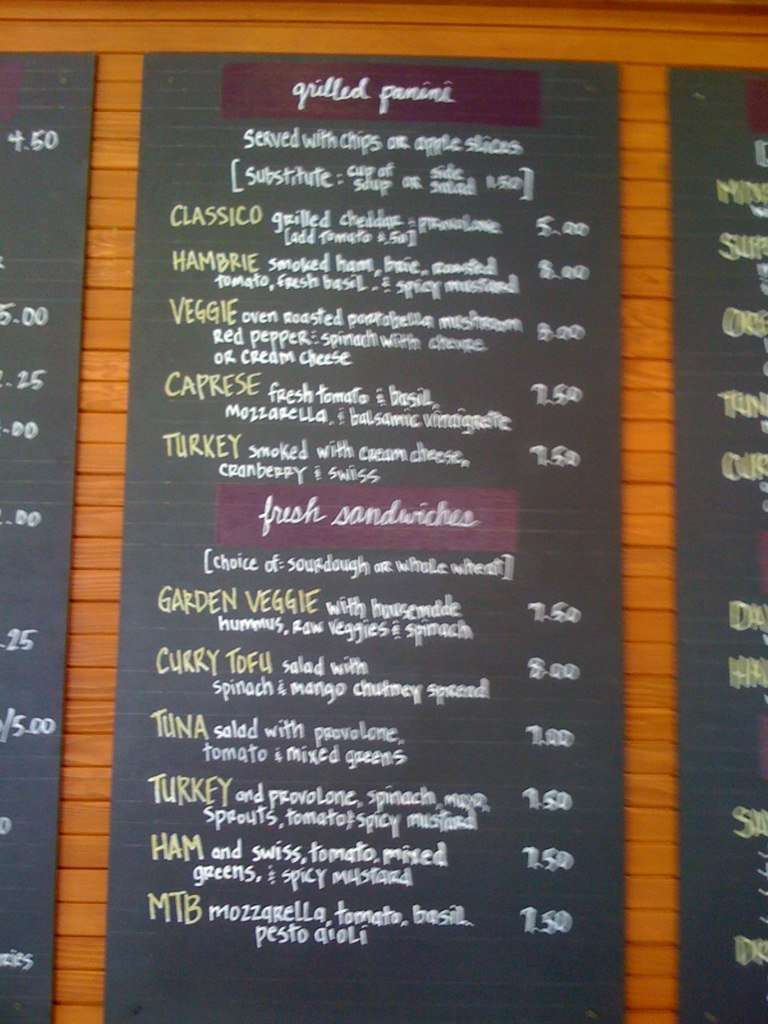 4.50
5.00
.25
.00
.00
.25
/5.00
grilled panini
served with chips or apple slices
[substitute: cup of soup or side salad 1.50]
CLASSICO grilled cheddar & provolone 5.00
[add tomato $.50]
HAMBRIE smoked ham, brie, roasted 8.00
tomato, fresh basil, & spicy mustard
VEGGIE oven roasted portabella mushroom 8.00
red pepper & spinach with chevre
or cream cheese
CAPRESE fresh tomato & basil, 7.50
mozzarella, & balsamic vinaigrette
TURKEY smoked with cream cheese, 7.50
cranberry & swiss
fresh sandwiches
[choice of: sourdough or whole wheat]
GARDEN VEGGIE with housemade 7.50
hummus, raw veggies & spinach
CURRY TOFU salad with 8.00
spinach & mango chutney spread
TUNA salad with provolone, 7.00
tomato & mixed greens
TURKEY and provolone, spinach, mayo, 7.50
sprouts, tomato & spicy mustard
HAM and swiss, tomato, mixed 7.50
greens, & spicy mustard
MTB mozzarella, tomato, basil, 7.50
pesto aioli